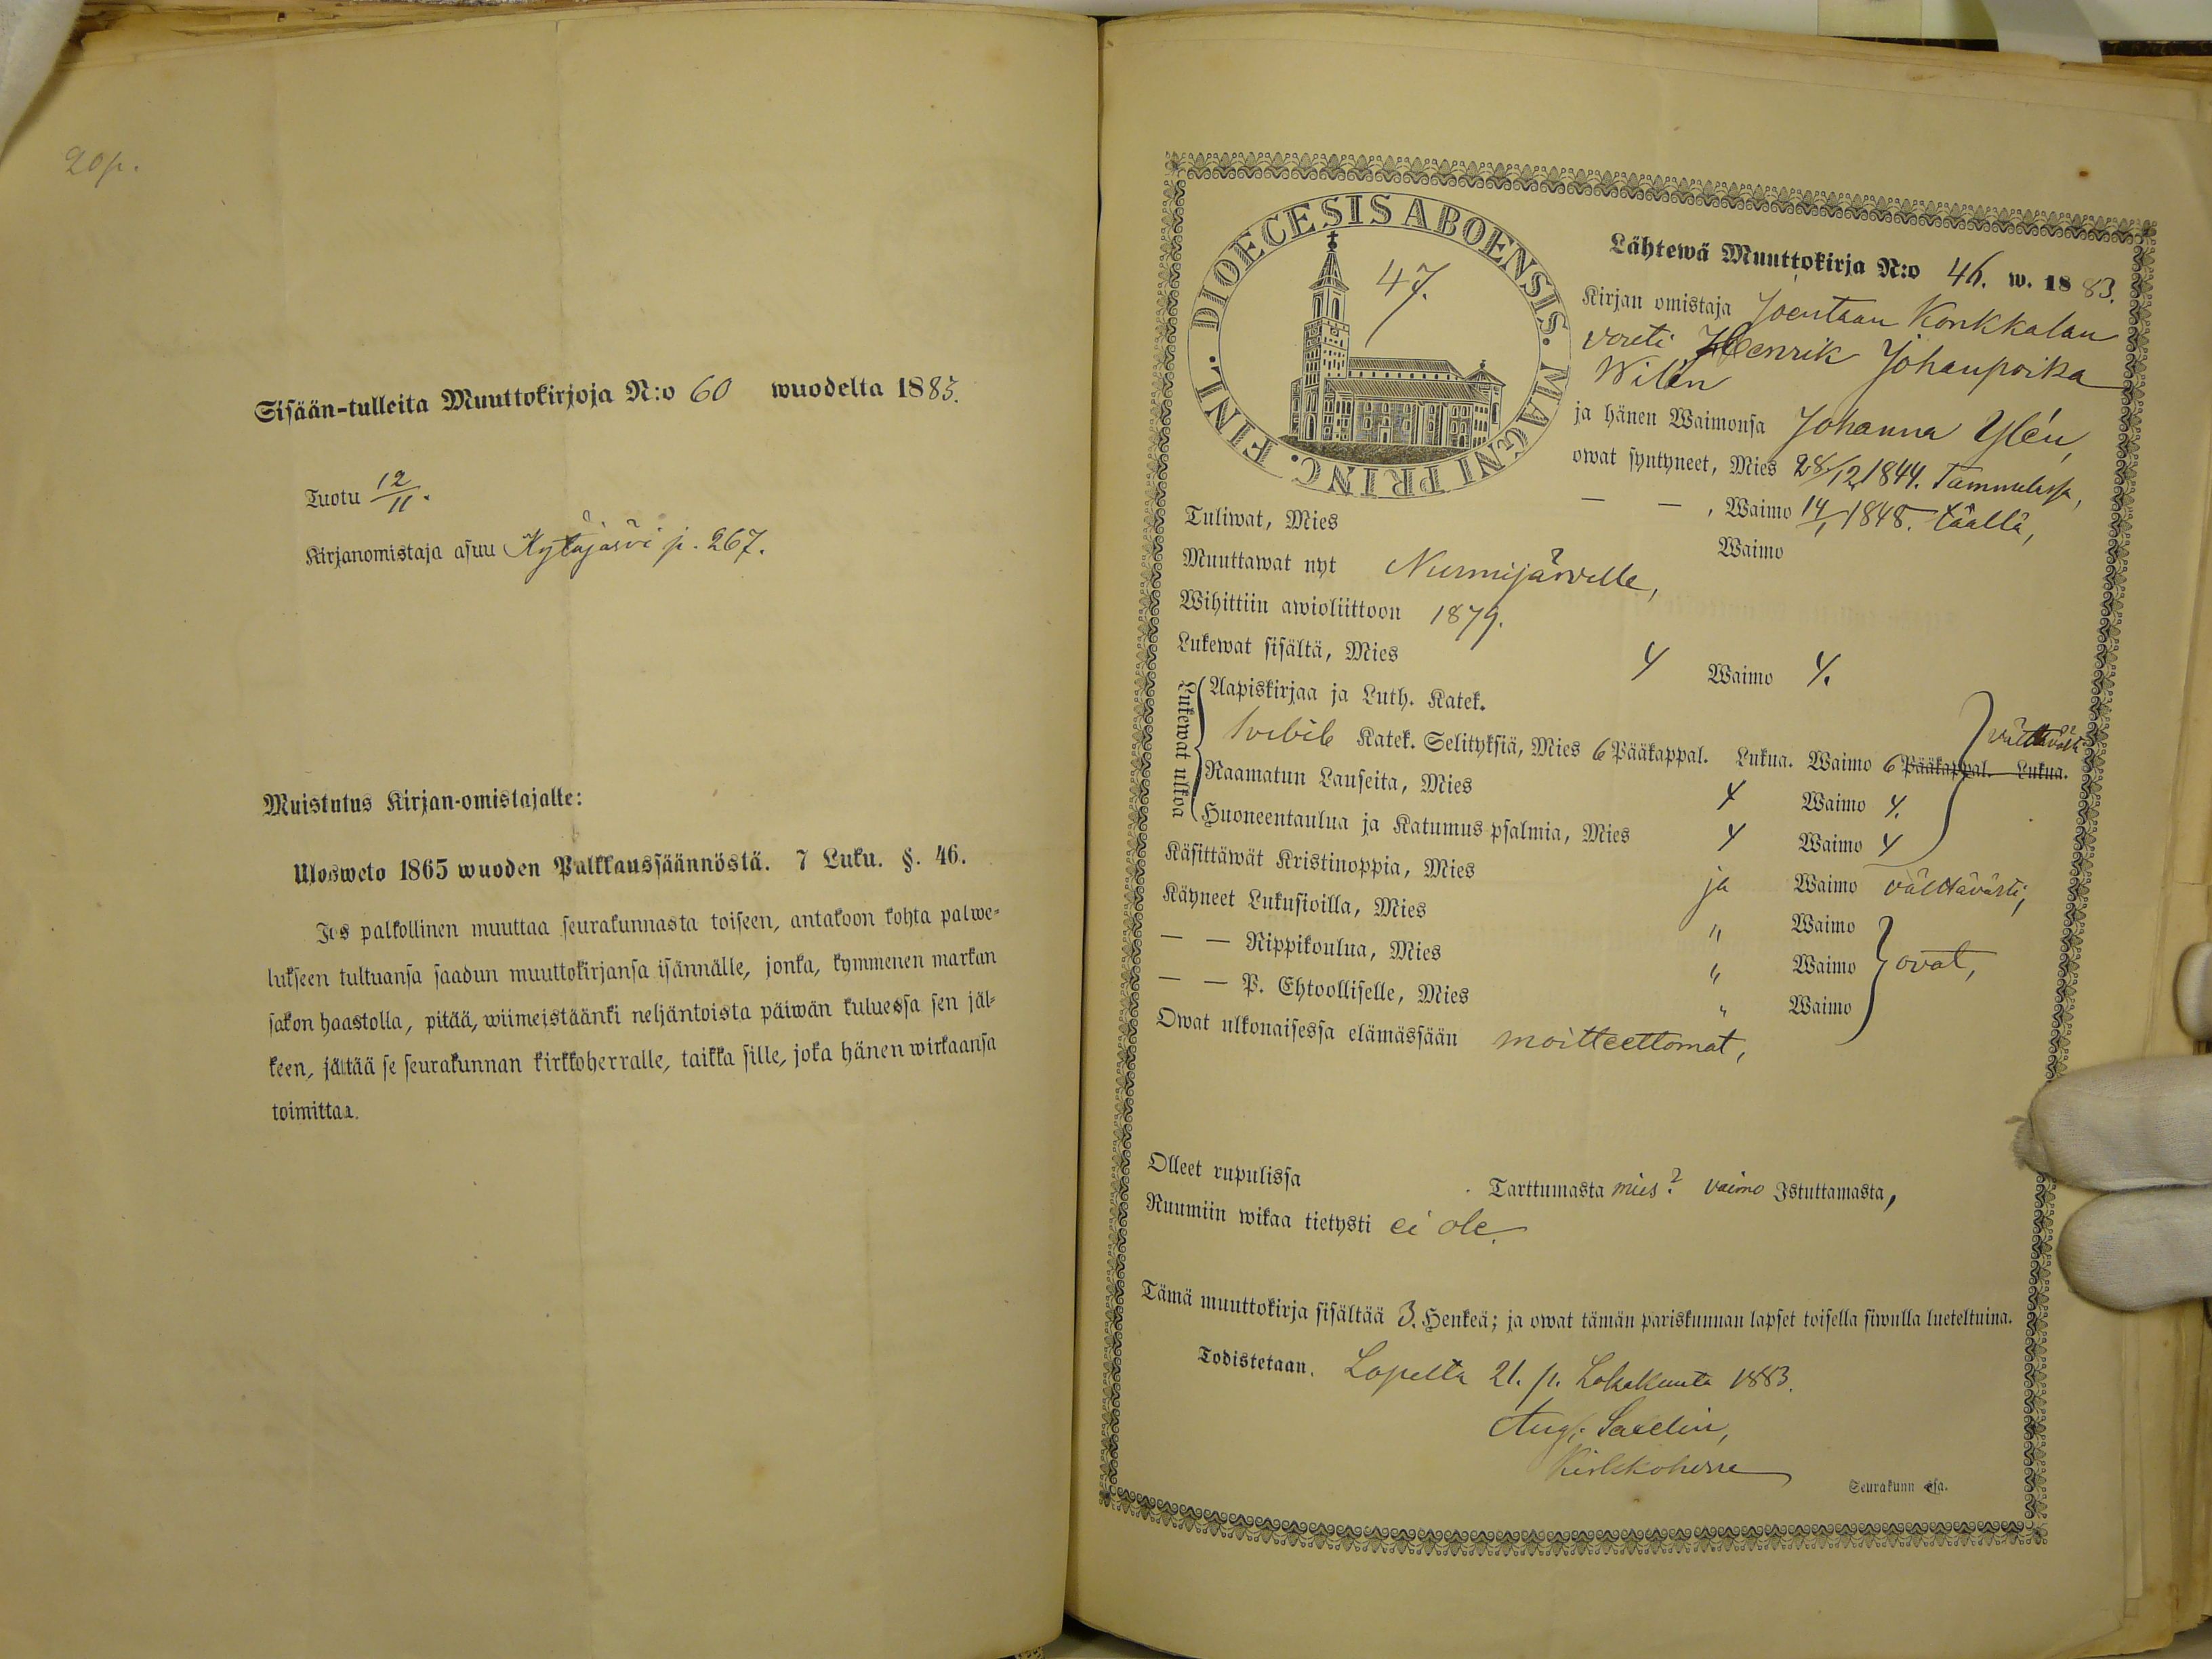 20 p.
Sisään-tulleita Muuttokirjoja N:o 60 wuodelta 1883.
Tuotu 12/11.
Kirjanomistaja asuu Kytäjärvi p. 267.
Muistutus Kirjan-omistajalle:
Ulosweto 1865 wuoden Palkkaussäännöstä. 7 Luku. §. 46.
Jos palkollinen muuttaa seurakunnasta toiseen, antakoon kohta palwe-
lukseen tultuansa saadun muuttokirjansa isännälle, jonka, kymmenen markan
sakon haastolla, pitää, wiimeistäänki neljäntoista päiwän kuluessa sen jäl-
keen, jättää se seurakunnan kirkkoherralle, taikka sille, joka hänen wirkaansa
toimittaa.
DIOECESIS ABOENSIS. MAGNI PRINC. FINL.
47.
Lähtewä Muuttokirja N:o 46. w. 1883.
Kirjan omistaja Joentaan Konkkalan
vouti Henrik Johanpoika
Wilén
ja hänen Waimonsa Johanna Ylén,
owat syntyneet, Mies 28/12 1844. Tammelassa,
— — , Waimo 14/1 1848. täällä,
Tuliwat, Mies Waimo
Muuttawat nyt Nurmijärvelle,
Wihittiin awioliittoon 1879.
Lukewat sisältä, Mies 4 Waimo 4.
Lukewat ulkoa
Aapiskirjaa ja Luth. Katek.
Svebil. Katek. Selityksiä, Mies 6 Pääkappal. Lukua. Waimo 6 Pääkappal. Lukua. välttävästi
Raamatun Lauseita, Mies 4 Waimo 4.
Huoneentaulua ja Katumus-psalmia, Mies 4 Waimo 4
Käsittäwät Kristinoppia, Mies ja Waimo välttävästi,
Käyneet Lukusioilla, Mies " Waimo
— — Rippikoulua, Mies " Waimo ovat,
— — P. Ehtoolliselle, Mies " Waimo
Owat ulkonaisessa elämässään moitteettomat,
Olleet rupulissa Tarttumasta mies? vaimo Istuttamasta,
Ruumiin wikaa tietysti ei ole.
Tämä muuttokirja sisältää 3. Henkeä; ja owat tämän pariskunnan lapset toisella siwulla lueteltuina.
Todistetaan. Lopelta 21. p. Lokakuuta 1883.
Kirkkoherra
Seurakunn ssa.